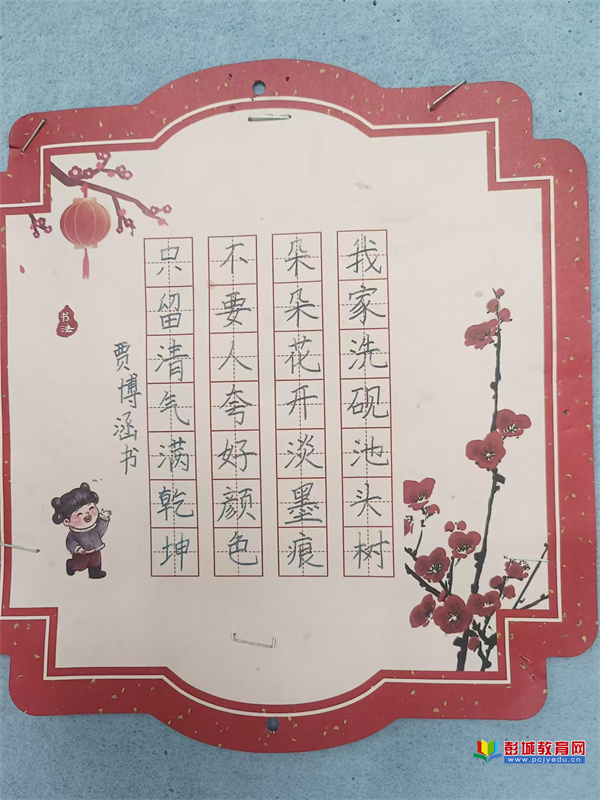 我家洗砚池头树
朵朵花开淡墨痕
不要人夸好颜色
只留清气满乾坤
贾博涵书
书法
彭城教育网
www.pcjyedu.cn